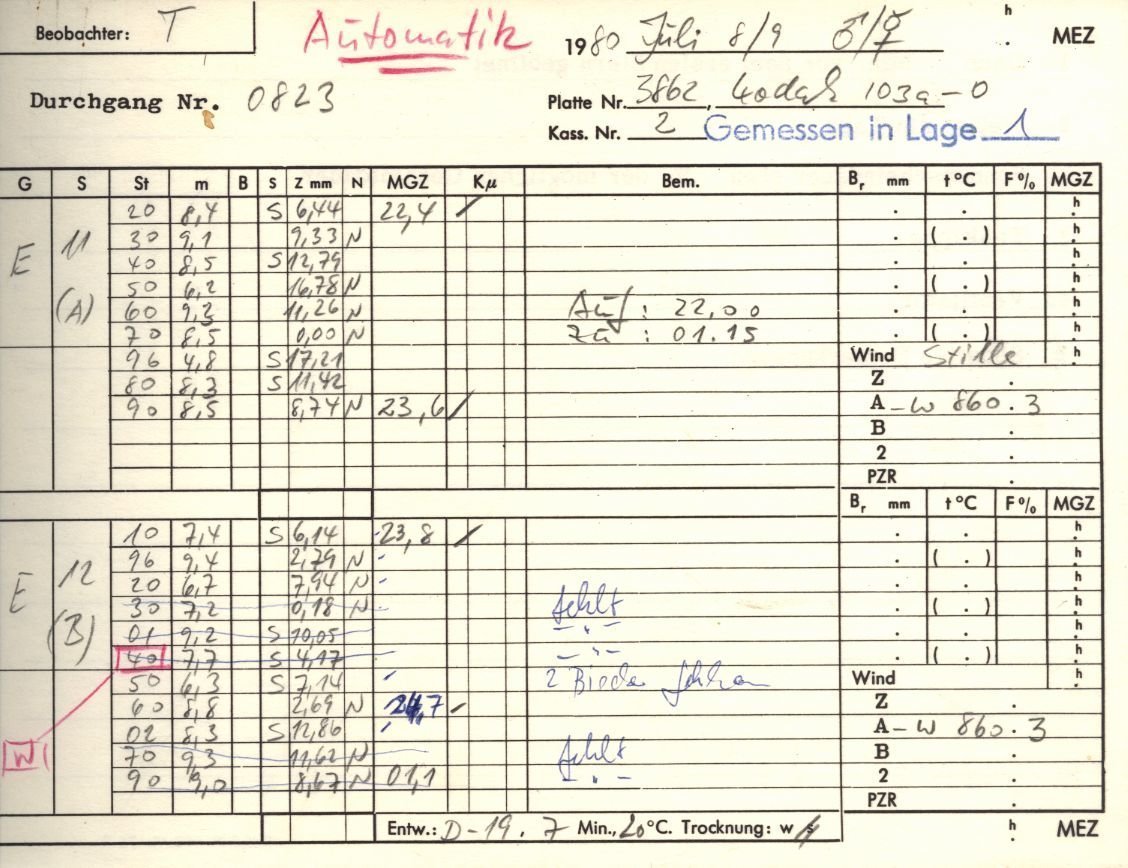 Beobachter: T Automatik 1980 Juli 8/9 ♂/☿ h . MEZ
Durchgang Nr. 0823 Platte Nr. 3862, Kodak 103a-O
Kass. Nr. 2 Gemessen in Lage 1
G S St m B S Z mm N MGZ Kμ Bem. Br mm t°C F% MGZ
E 11 (A)
20 8,4 S 6,44 22,4 / . . h
30 9,1 9,33 N . ( . ) h
40 8,5 S 12,79 . . h
50 6,2 16,78 N . ( . ) h
60 9,3 11,26 N Auf : 22,00 . . h
70 8,5 0,00 N Zu : 01.15 . ( . ) h
96 4,8 S 17,21 Wind Stille h
80 8,3 S 11,42 Z .
90 8,5 8,74 N 23,6 / A -W 860.3
B .
2 .
PZR .
Br mm t°C F% MGZ
E 12 (B)
10 7,4 S 6,14 23,8 / . . h
96 9,4 2,79 N . ( . ) h
20 6,7 7,94 N . . h
30 7,2 0,18 N fehlt . ( . ) h
01 9,2 S 10,05 - " - . . h
40 7,7 S 4,17 - " - . ( . ) h
50 6,3 S 7,14 2 Wind h
60 8,8 2,69 N 24,7 / Z .
02 8,3 S 12,86 A -W 860.3
W 70 9,3 11,62 N fehlt B .
90 9,0 8,67 N 01,1 - " - 2 .
PZR .
Entw.: D-19. 7 Min., 20°C. Trocknung: w/k h . MEZ